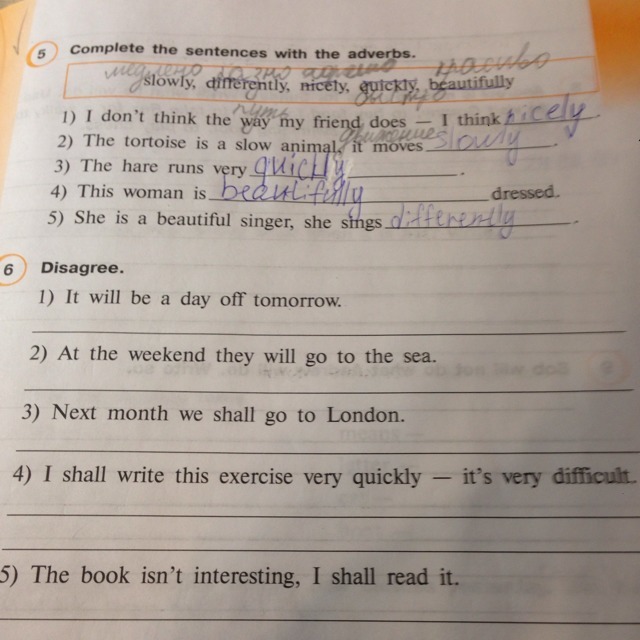 5 Complete the sentences with the adverbs.
медлено красиво
slowly, differently, nicely, quickly, beautifully
путь
1) I don't think the way my friend does — I think nicely.
движение
2) The tortoise is a slow animal, it moves slowly.
3) The hare runs very quickly.
4) This woman is beautifully dressed.
5) She is a beautiful singer, she sings differently.
6 Disagree.
1) It will be a day off tomorrow.
2) At the weekend they will go to the sea.
3) Next month we shall go to London.
4) I shall write this exercise very quickly — it's very difficult.
5) The book isn't interesting, I shall read it.